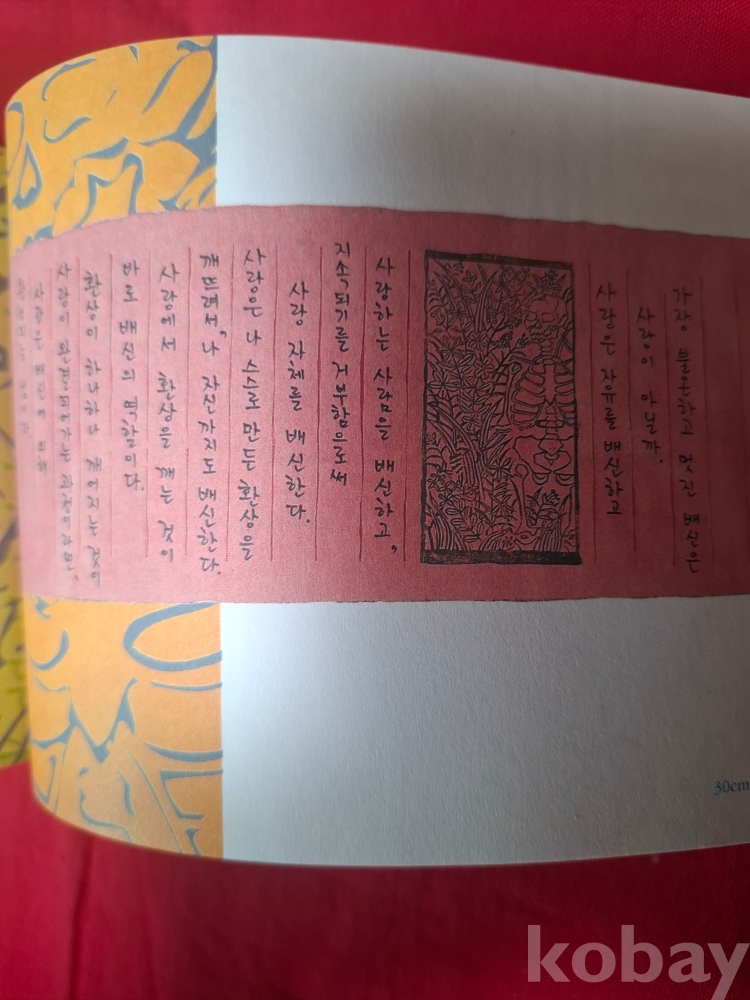 가장 불온하고 멋진 배신은
사랑이 아닐까.
사랑은 자유를 배신하고
사랑하는 사람을 배신하고,
지속되기를 거부함으로써
사랑 자체를 배신한다.
사랑은 나 스스로 만든 환상을
깨뜨려서, 나 자신까지도 배신한다.
사랑에서 환상을 깨는 것이
바로 배신의 역할이다.
환상이 하나하나 깨어지는 것이
사랑이 완결되어가는 과정이라면,
사랑은 배신에 의해
30cm
kobay